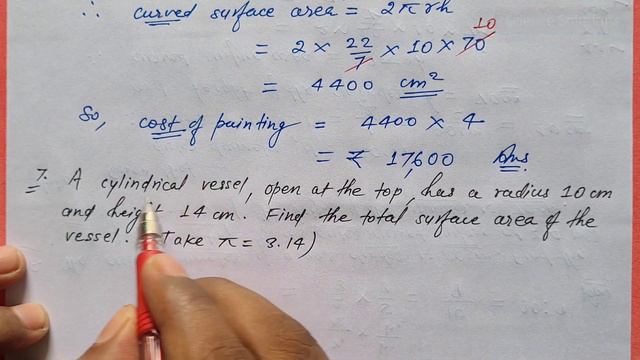 ∴ curved surface area = 2πrh
= 2 × 22/7 × 10 × 70 10
= 4400 cm²
So, cost of painting = 4400 × 4
= ₹ 17,600 Ans
7. A cylindrical vessel, open at the top, has a radius 10 cm
and height 14 cm. Find the total surface area of the
vessel. (Take π = 3.14)